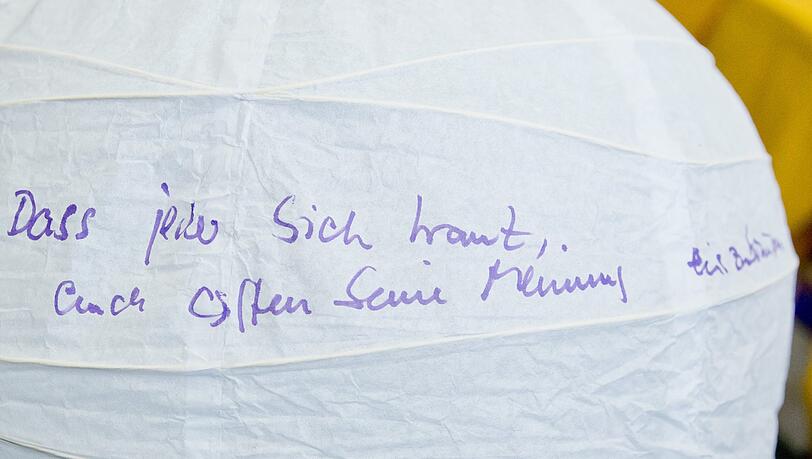 Dass jeder sich traut,
auch offen seine Meinung